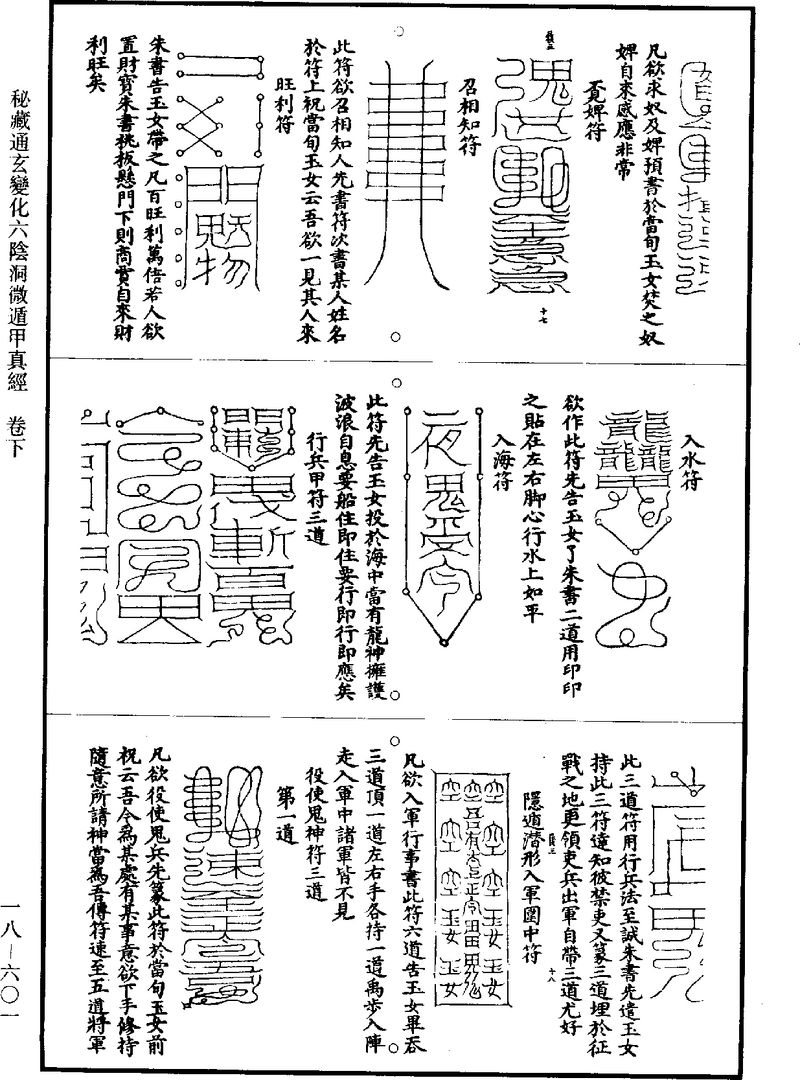 凡欲求奴及婢預書於當旬玉女焚之奴
婢自來感應非常
覔婢符
十七
召相知符
此符欲召相知人先書符次書某人姓名
於符上祝當旬玉女云吾欲一見其人來
旺利符
朱書告玉女帶之凡百旺利萬倍若人欲
置財寳朱書桃板懸門下則商賈自來財
利旺矣
入水符
欲作此符先告玉女了朱書二道用印印
之貼在左右脚心行水上如平
入海符
此符先告玉女投於海中當有龍神擁護
波浪自息要船住即住要行即行即應矣
行兵甲符三道
此三道符用行兵法至誠朱書先遣玉女
持此三符達知彼禁吏又篆三道埋於征
戰之地更領吏兵出軍自帶三道尤好
隱遁潜形入軍圍中符
十八
凡欲入軍行事書此符六道告玉女畢吞
三道頂一道左右手各持一道禹步入陣
走入軍中諸軍皆不見
役使鬼神符三道
第一道
凡欲役使鬼兵先篆此符於當旬玉女前
祝云吾今為某處有某事意欲下手修持
隨意所請神當為吾傳符速至五道將軍
秘藏通玄變化六陰洞微遁甲真經　卷下
一八—六〇一